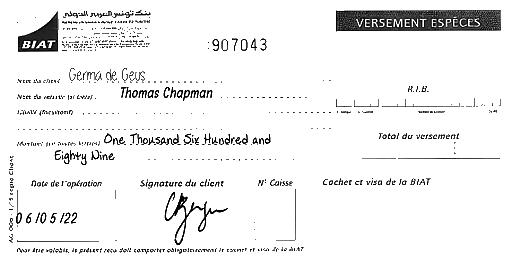 بنك تونس العربي الدولي
BIAT
VERSEMENT ESPÈCES
907043
Nom du client Germa de Geus
Nom du remettant (si tiers) Thomas Chapman
R.I.B.
Montant (en toutes lettres) One Thousand Six Hundred and
Eighty Nine
Total du versement
Date de l'opération
Signature du client
N° Caisse
Cachet et visa de la BIAT
06/05/22
Pour être valable, le présent reçu doit comporter obligatoirement le cachet et visa de la BIAT